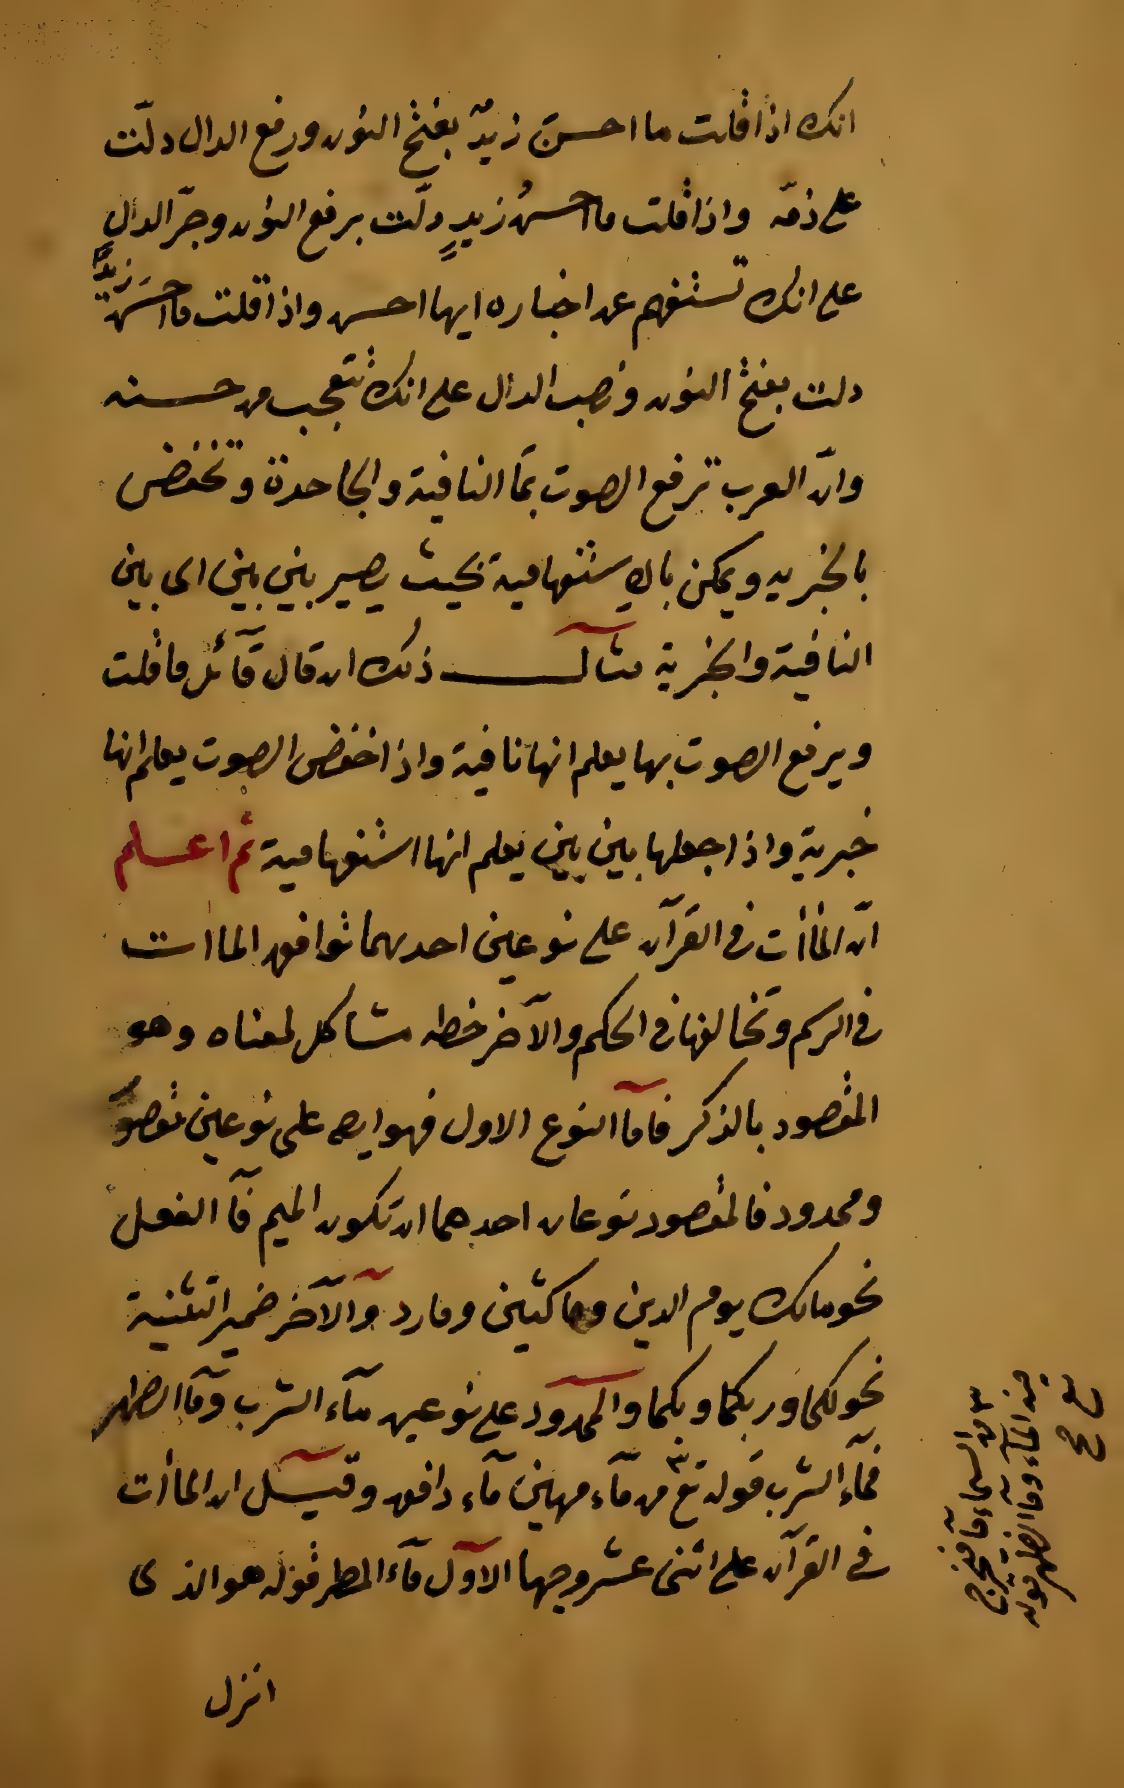 انك اذا قلت ما احسنَ زيدٌ بفتح النون ورفع الدال دلّت
على ذمّه واذا قلت ما احسنُ زيدٍ دلّت برفع النون وجرّ الدال
على انك تستفهم عن اخباره ايها احسن واذا قلت ما احسنَ زيدًا
دلت بفتح النون ونصب الدال على انك تتعجب من حسنه
وان العرب ترفع الصوت بمَا النافية والجاحدة وتخفض
بالخبريه ويمكن بالاستفهامية بحيث يصير بين بين اى بين
النافية والخبرية مثال ذلك ان قال قآئل ما قلت
ويرفع الصوت بها يعلم انها نافية واذا خفض الصوت يعلم انها
خبرية واذا جعلها بين بين يعلم انها استفهامية ثم اعلم
انّ المأات فى القرآن على نوعين احدهما توافق الماات
فى الرسم وتخالفها فى الحكم والآخر خطه مشاكل لمعناه وهو
المقصود بالذكر فامّا النوع الاول فهو ايضا على نوعين مقصور
وممدود فالمقصور نوعان احدهما ان تكون الميم فآ الفعل
نحو مالك يوم الدين وماكثين ومارد والآخر ضمير التثنية
نحو لكما وربكما وبكما والممدود على نوعين مآء الشرب ومآ الظهر
فمآء الشرب قوله تع من مآء مهين مآء دافق وقيل ان المأات
فى القرآن على اثنى عشر وجها الاول مآء المطر قوله هو الذى
انزل
من السماء مآ فتخرج
من المآء ومآ الظهر قوله